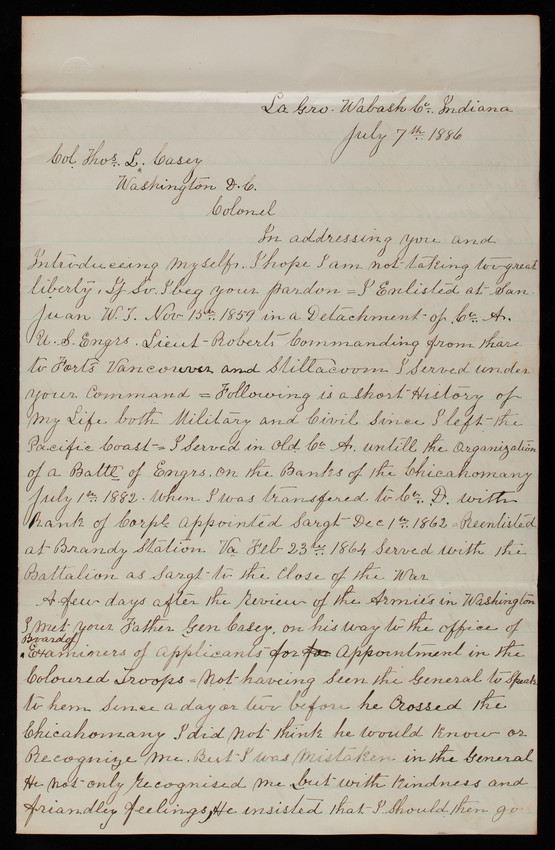 La Gro. Wabash Co. Indiana
July 7th 1886
Col. Thos. L. Casey
Washington D.C.
Colonel
In addressing you and
Introduceing myself, I hope I am not taking to great
liberty, If So. I beg your pardon = I Enlisted at San
Juan W.T. Nov 15th 1859 in a Detachment of Co. A.
U.S. Engrs. Lieut Roberts Commanding from thare
to Forts Vancouver and Stillacoom I Served under
your Command = Following is a short History of
My Life both Military and Civil Since I left the
Pacific Coast = I Served in Old Co A. untill the Organization
of a Battn of Engrs. on the Banks of the Chicahomany
July 1st 1882. when I was transfered to Co. D. with
Rank of Corpl appointed Sargt Dec 1st 1862 = Reenlisted
at Brandy Station Va Feb 23rd 1864 Served with the
Battalion as Sargt to the Close of the War
A few days after the Review of the Armies in Washington
I Met your Father Gen Casey, on his way to the office of
Board of
Examiners of applicants for for Appointment in the
Coloured Troops = Not haveing Seen the General to Speak
to hem Since a day or two before he Crossed the
Chicahomany I did Not think he would Know or
Recognize Me. But I was Mistaken in the General
He not only recognised me but with Kindness and
friendly feelings, He insisted that I Should then go